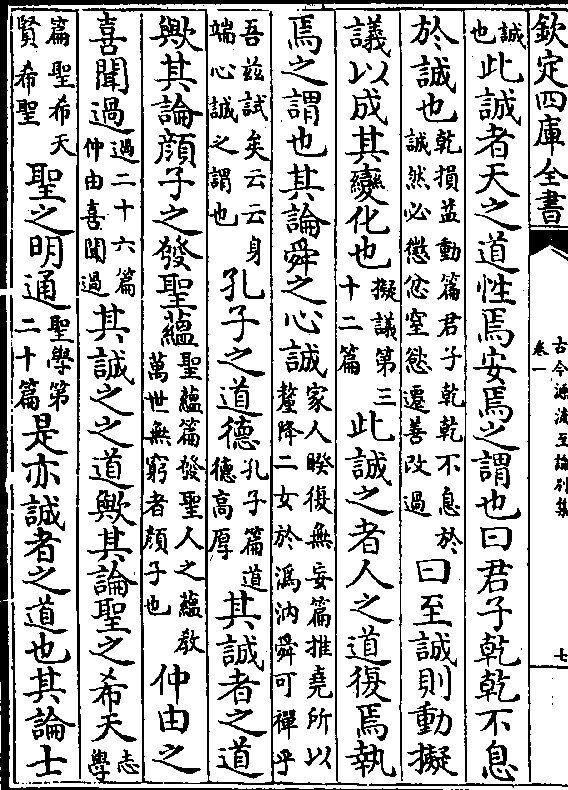 欽定四庫全書
古今源流至論别集
卷一
七
誠也此誠者天之道性焉安焉之謂也曰君子乾乾不息
於誠也乾損益動篇君子乾乾不息於誠然必懲忿窒慾遷善改過曰至誠則動擬
議以成其變化也擬議第三十二篇此誠之者人之道復焉執
焉之謂也其論舜之心誠家人睽復無妄篇推堯所以釐降二女於溈汭舜可禪乎
吾兹試矣云云身端心誠之謂也孔子之道德孔子篇道德高厚其誠者之道
歟其論顔子之發聖蘊聖蘊篇發聖人之蘊敎萬世無窮者顔子也仲由之
喜聞過過二十六篇仲由喜聞過其誠之之道歟其論聖之希天志學
篇聖希天賢希聖聖之明通聖學第二十篇是亦誠者之道也其論士